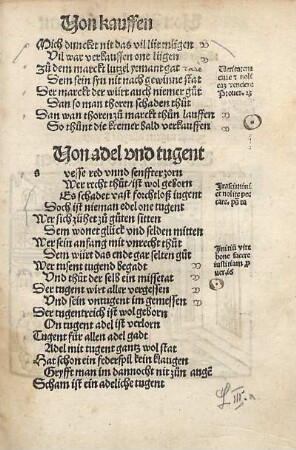 Von kauffen
Mich dunckt nit das vil lüt mügen
Vil war verkauffen one lügen
Zů dem marckt lutzel yemant gat
Dem sein sin nit nach gewinne stat
Der marckt der würt auch niemer gůt
Dan so man thoren schaden thůt
Dan wan thoren zů marckt thůn lauffen
So thůnt die kremer bald verkauffen
Von adel vnd tugent
vesse red vnnd senffter zorn
Wer recht thůt ist wol geborn
Es schadet vast forchtloß iugent
Doch ist nieman edel one tugent
Wer sich zühet zů gůten sitten
Dem wonet glück vnd selden mitten
Wer sein anfang mit vnrecht thůt
Dem würt das ende gar selten gůt
Wer tusent tugend begadt
Vnd thůt der selb ein missetat
Der tugent wirt aller vergessen
Vnd sein vntugent im gemessen
Der tugentreich ist wol geborn
On tugent adel ist verlorn
Tugent für allen adel gadt
Adel mit tugent gantz wol stat
Hat schon ein federspil kein klauwen
Gryfft man im dannocht nit zůn
Scham ist ein adeliche tugent
Prouer.
Irascimini
et nolite pec
care. ps
Initiū vite
bone facere
iusticiam p
uer. 16